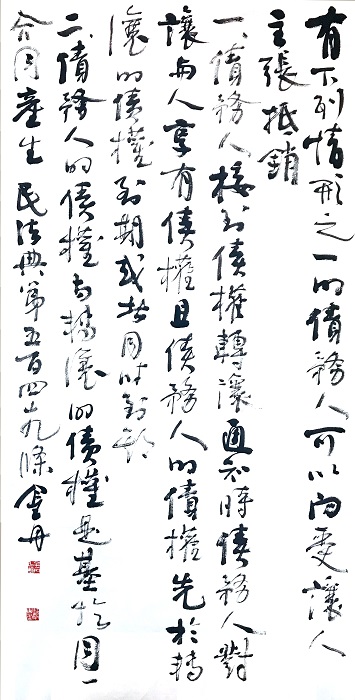 有下列情形之一的債務人可以向受讓人
主張抵銷
一、債務人接到債權轉讓通知時債務人對
讓与人享有債權且債務人的債權先於轉
讓的債權到期或者同时到期
二、債務人的債權与轉讓的債權是基於同一
合同產生 民法典第五百四十九條 金丹